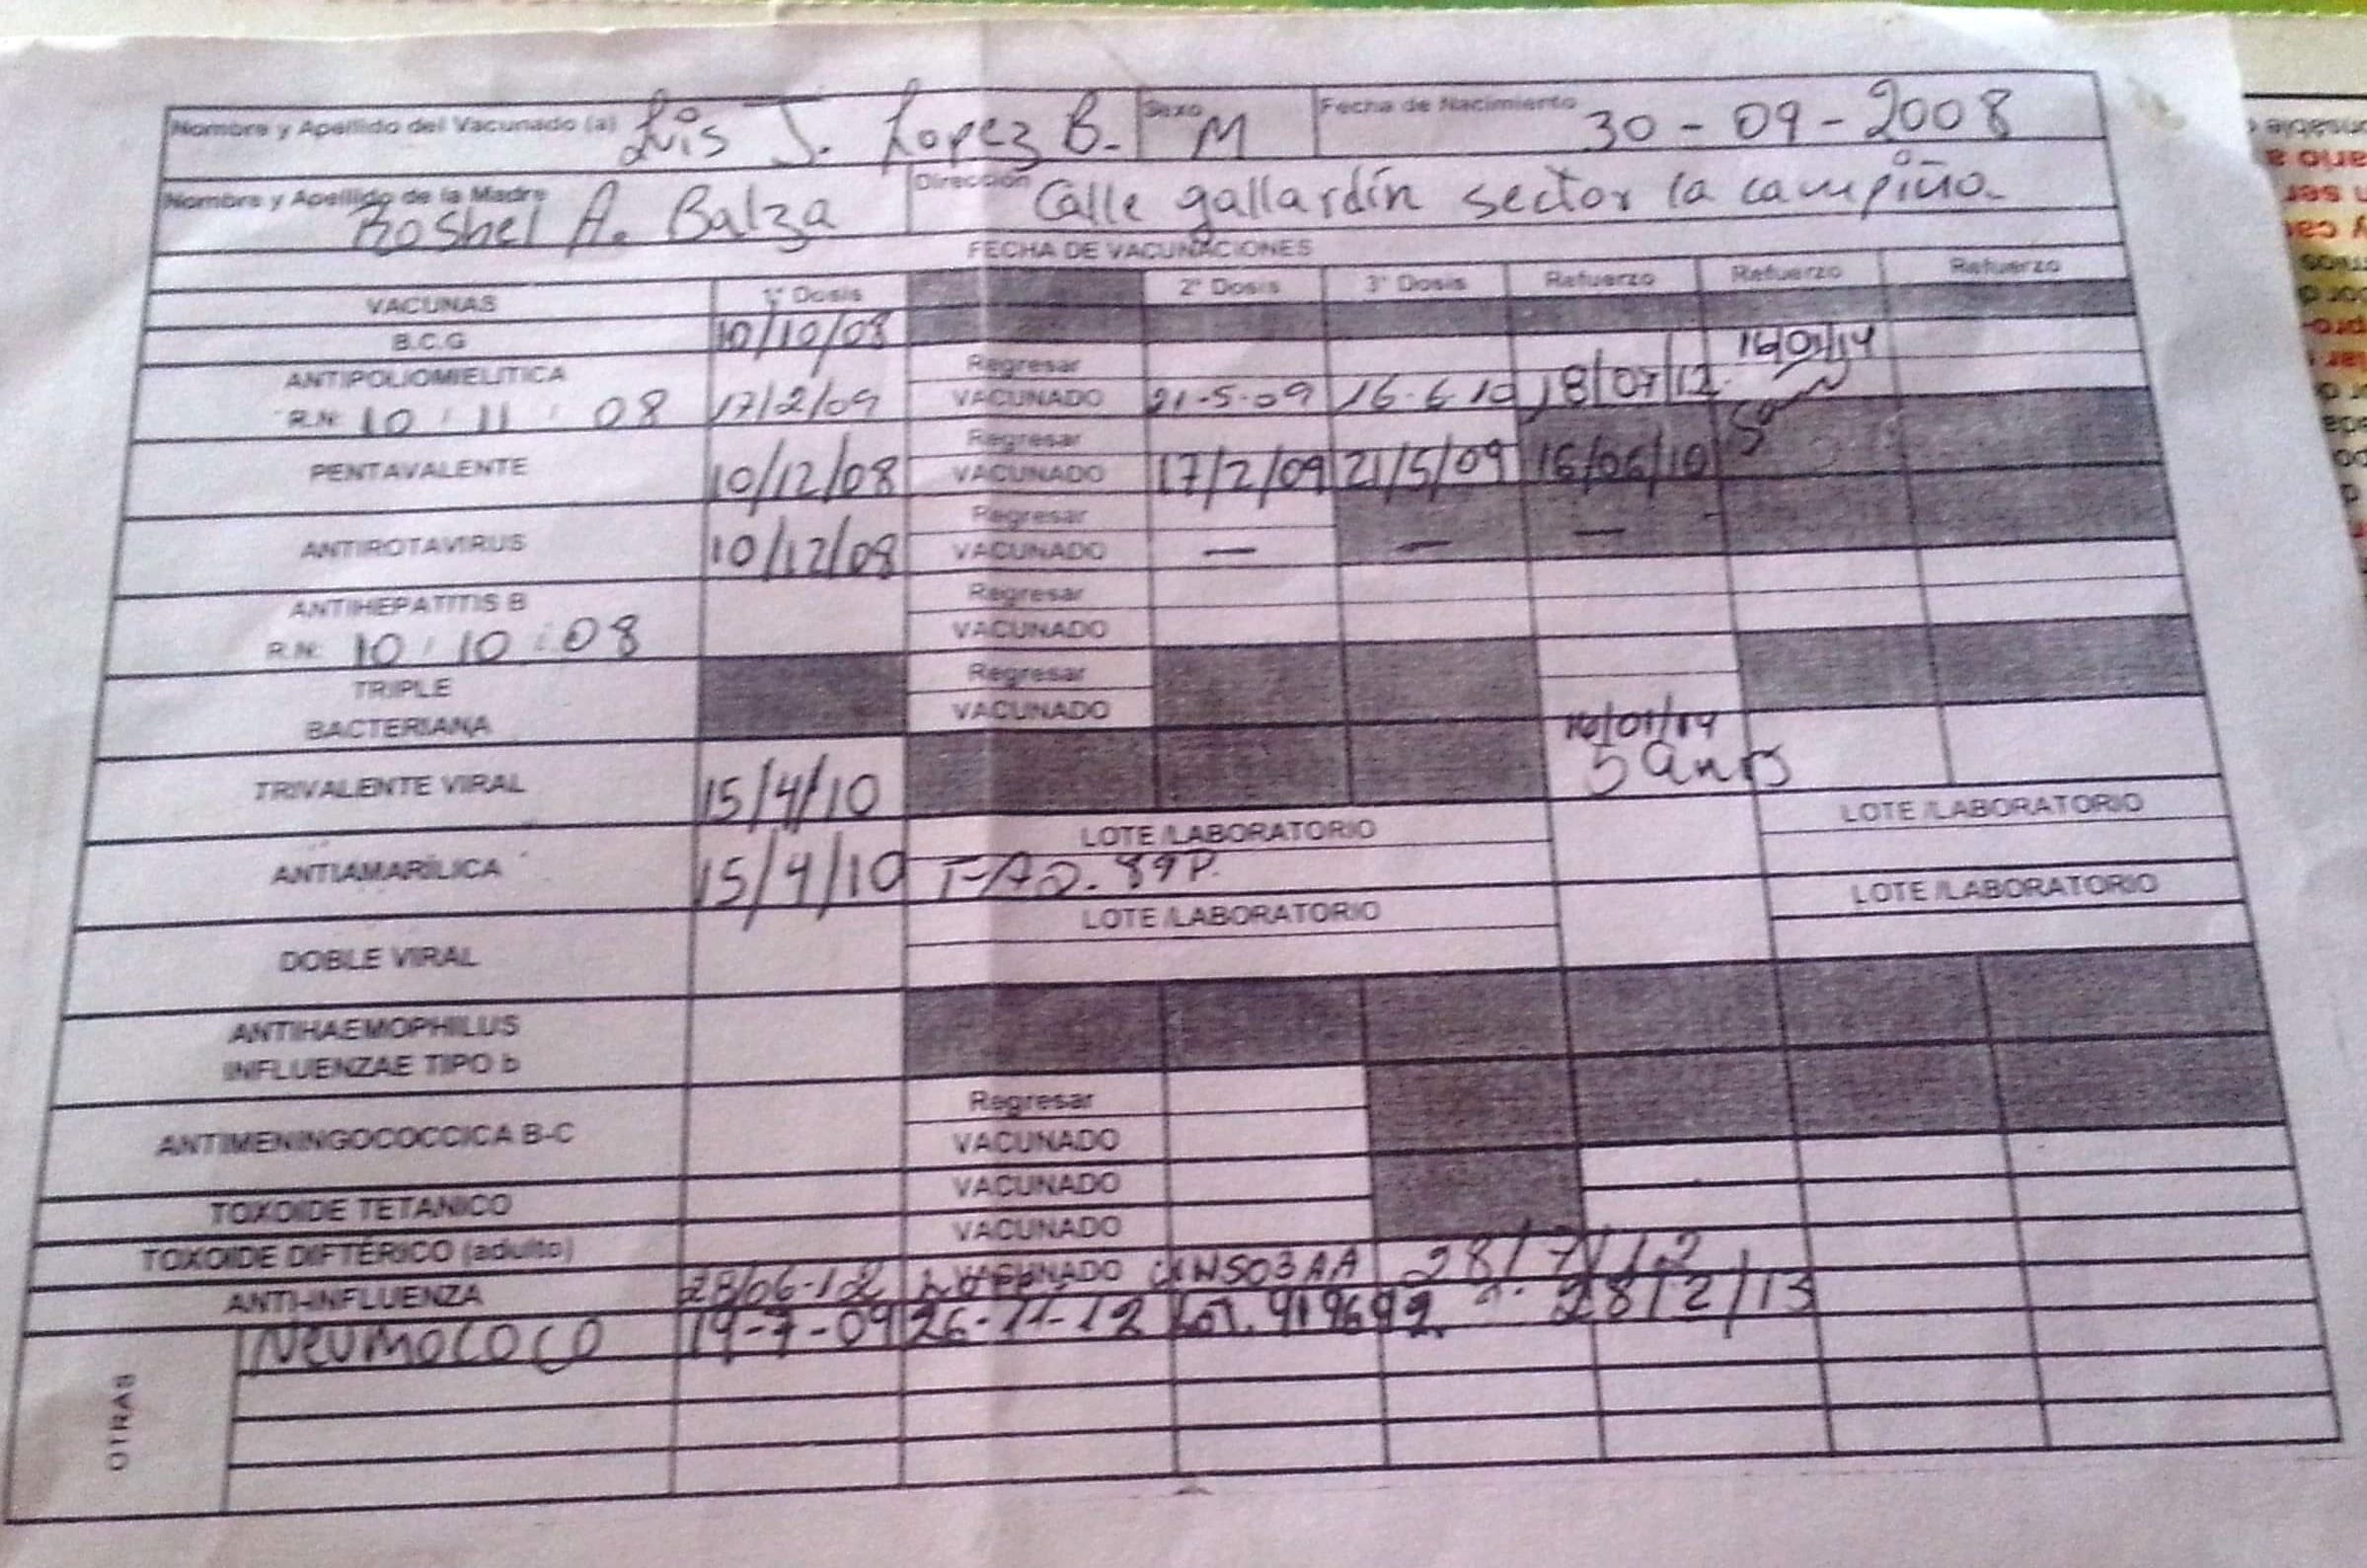 Nombre y Apellido del Vacunado (a) Luis J. Lopez B. Sexo M Fecha de Nacimiento 30 - 09 - 2008
Nombre y Apellido de la Madre Roshel A. Balza Dirección Calle gallardín sector la campiña
FECHA DE VACUNACIONES
VACUNAS 1ª Dosis 2ª Dosis 3ª Dosis Refuerzo Refuerzo Refuerzo
B.C.G 10/10/08
ANTIPOLIOMIELITICA Regresar 16/01/14
R.N: 10 11 08 17/2/09 VACUNADO 21-5-09 16-6-10 18/07/12
Regresar
PENTAVALENTE 10/12/08 VACUNADO 17/2/09 21/5/09 16/06/10
Regresar
ANTIROTAVIRUS 10/12/08 VACUNADO — — —
ANTIHEPATITIS B Regresar
R.N: 10 10 08 VACUNADO
TRIPLE Regresar
BACTERIANA VACUNADO
TRIVALENTE VIRAL 15/4/10 16/01/14
5 años
LOTE /LABORATORIO LOTE /LABORATORIO
ANTIAMARÍLICA 15/4/10 89P.
LOTE /LABORATORIO LOTE /LABORATORIO
DOBLE VIRAL
ANTIHAEMOPHILUS
INFLUENZAE TIPO b
Regresar
ANTIMENINGOCOCCICA B-C VACUNADO
TOXOIDE TETANICO VACUNADO
TOXOIDE DIFTÉRICO (adulto) VACUNADO
ANTI-INFLUENZA 28/06-12 VACUNADO 28/7/12
OTRAS
NEUMOCOCO 19-7-09 26-11-12 Lot. 919692 28/2/13